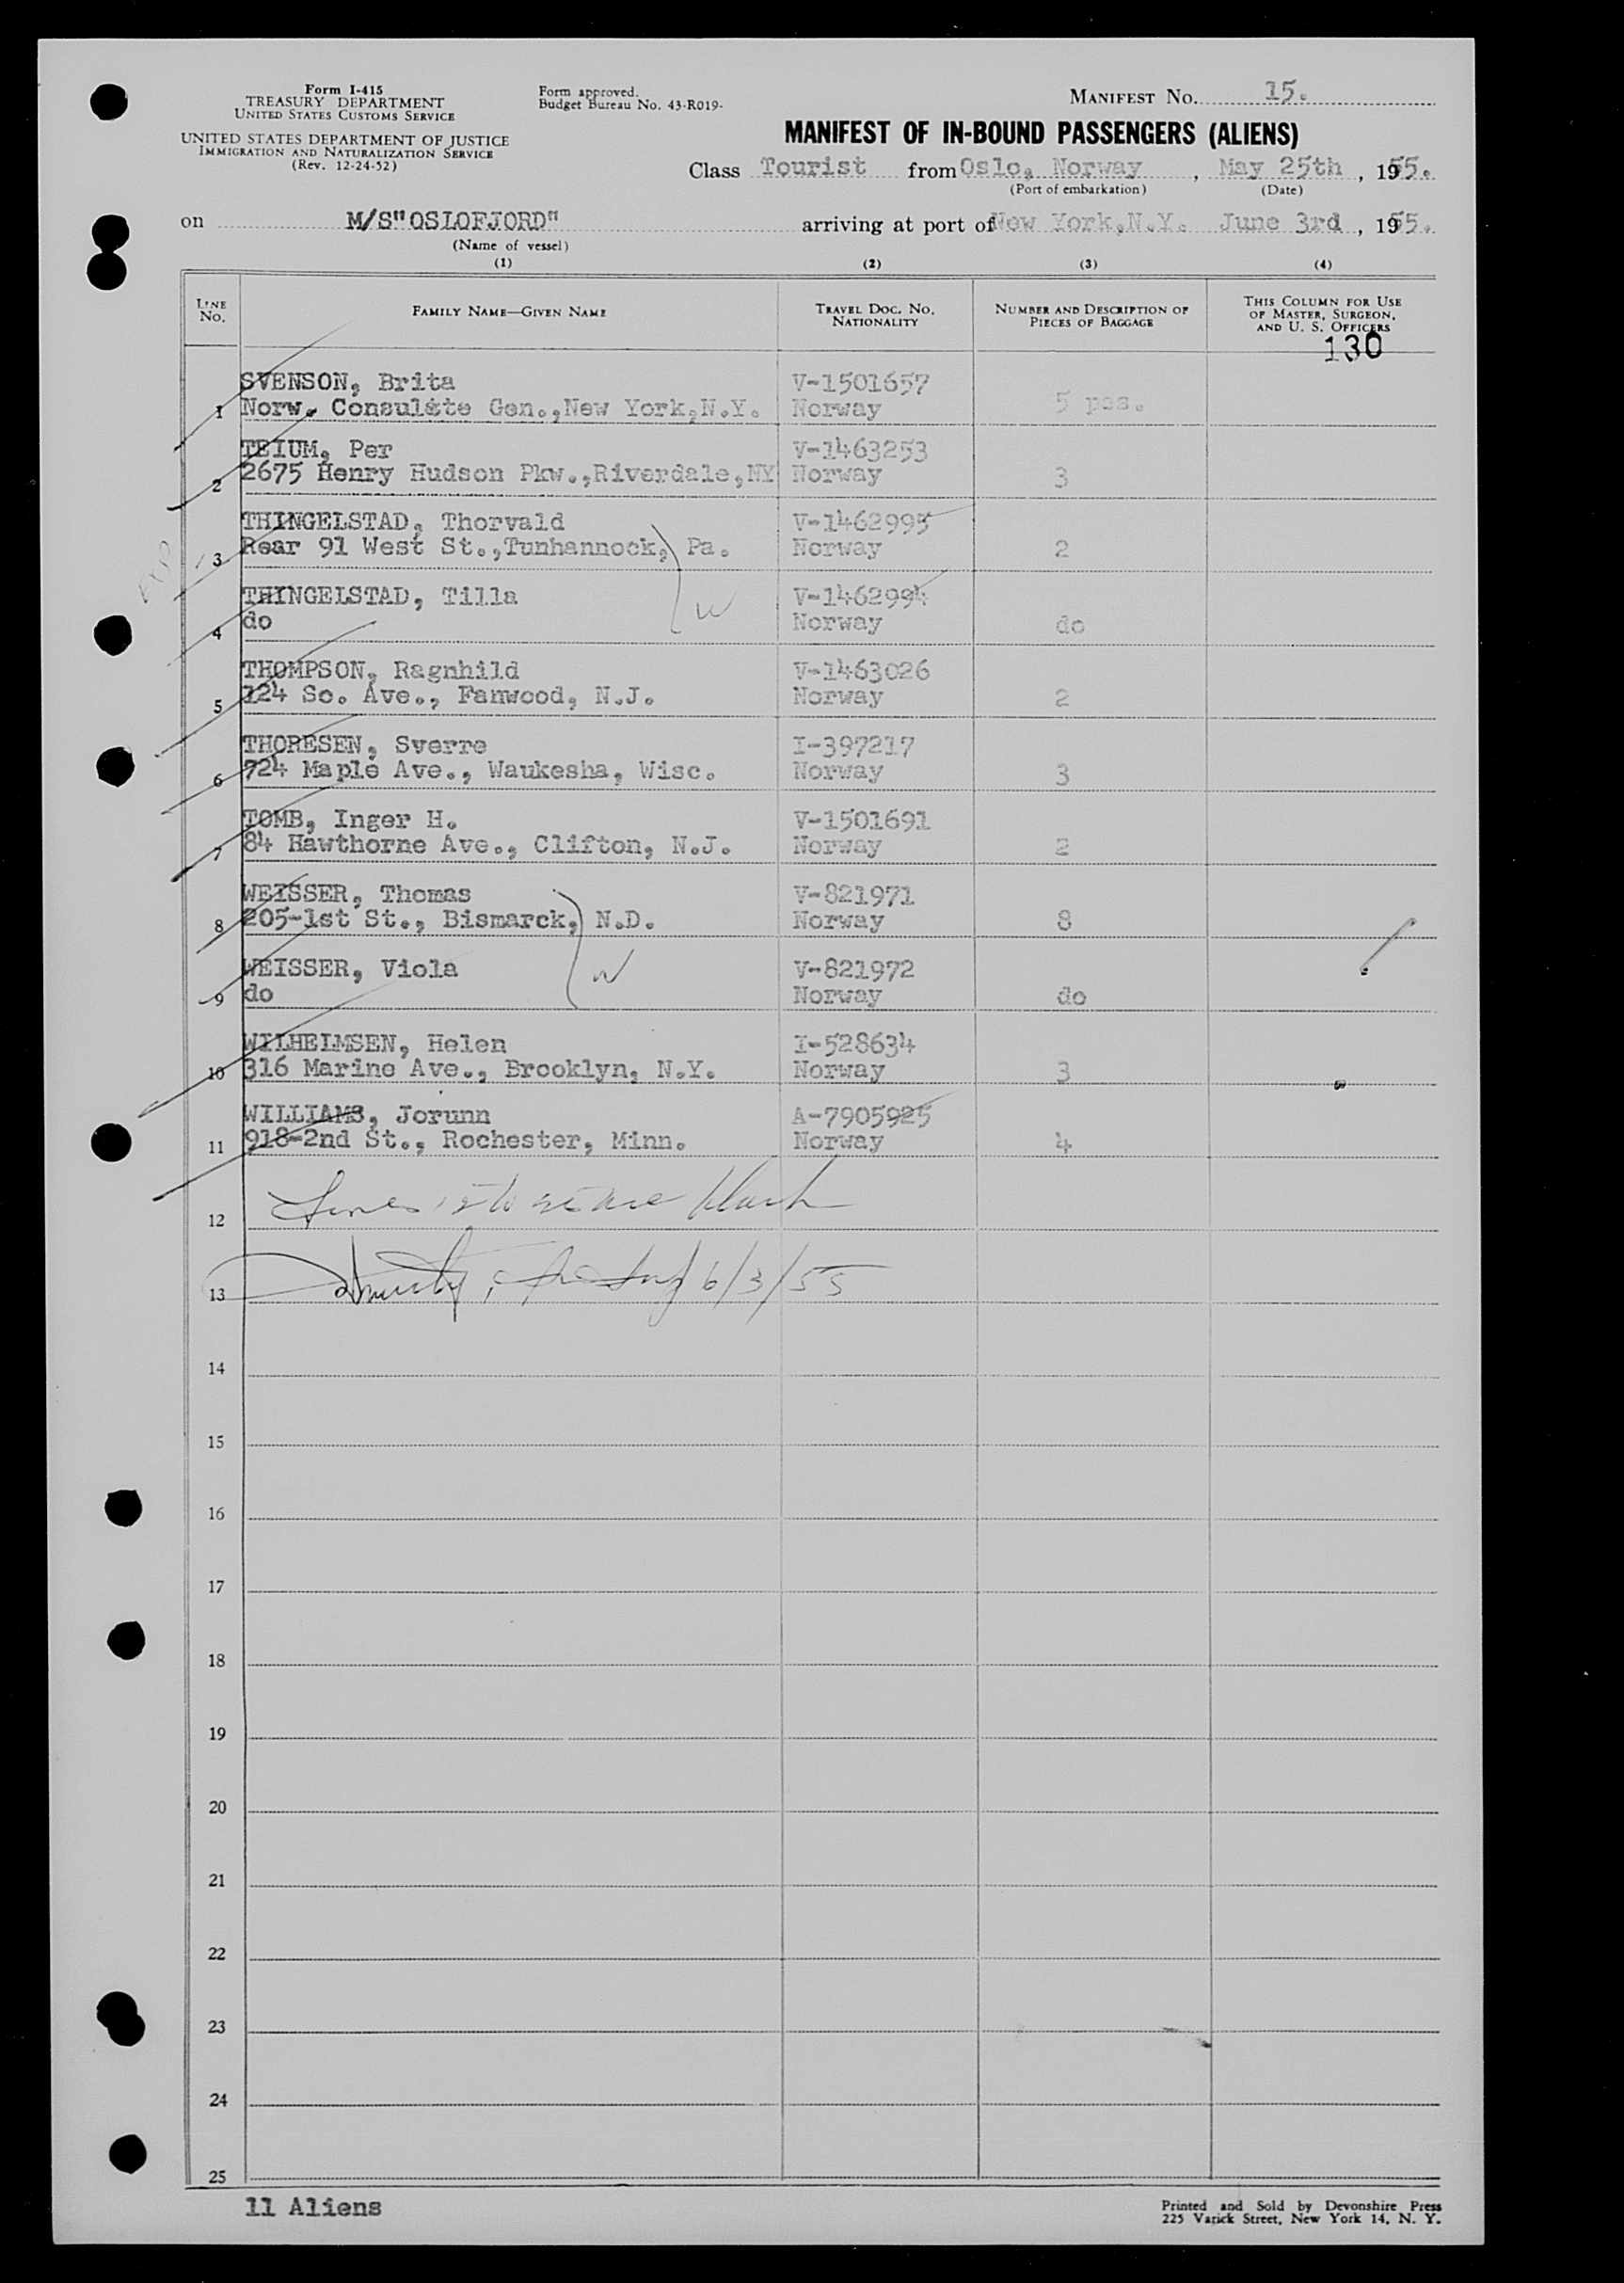 Form I-415
TREASURY DEPARTMENT
UNITED STATES CUSTOMS SERVICE
UNITED STATES DEPARTMENT OF JUSTICE
IMMIGRATION AND NATURALIZATION SERVICE
(Rev. 12-24-52)
Form approved.
Budget Bureau No. 43-R019-
MANIFEST No. 15.
MANIFEST OF IN-BOUND PASSENGERS (ALIENS)
Class Tourist from Oslo, Norway, May 25th, 1955.
(Port of embarkation) (Date)
on M/S"OSLOFJORD" arriving at port of New York,N.Y. June 3rd, 1955.
(Name of vessel)
(1) (2) (3) (4)
LINE No. FAMILY NAME—GIVEN NAME TRAVEL DOC. NO. NATIONALITY NUMBER AND DESCRIPTION OF PIECES OF BAGGAGE THIS COLUMN FOR USE OF MASTER, SURGEON, AND U. S. OFFICERS
130
SVENSON, Brita V-1501657
1 Norw. Consulate Gen.,New York,N.Y. Norway 5 pcs.
TEIUM, Per V-1463253
2 2675 Henry Hudson Pkw.,Riverdale,NY Norway 3
THINGELSTAD, Thorvald V-1462995
3 Rear 91 West St.,Tunhannock, Pa. Norway 2
THINGELSTAD, Tilla V-1462994
4 do W Norway do
THOMPSON, Ragnhild V-1463026
5 124 So. Ave., Fanwood, N.J. Norway 2
THORESEN, Sverre I-397217
6 724 Maple Ave., Waukesha, Wisc. Norway 3
TOMB, Inger H. V-1501691
7 84 Hawthorne Ave., Clifton, N.J. Norway 2
WEISSER, Thomas V-821971
8 205-1st St., Bismarck, N.D. Norway 8
WEISSER, Viola W V-821972
9 do Norway do
WILHELMSEN, Helen I-528634
10 316 Marine Ave., Brooklyn, N.Y. Norway 3
WILLIAMS, Jorunn A-7905925
11 918-2nd St., Rochester, Minn. Norway 4
12 Lines
13 6/3/55
14
15
16
17
18
19
20
21
22
23
24
25
11 Aliens
Printed and Sold by Devonshire Press
225 Varick Street, New York 14, N. Y.